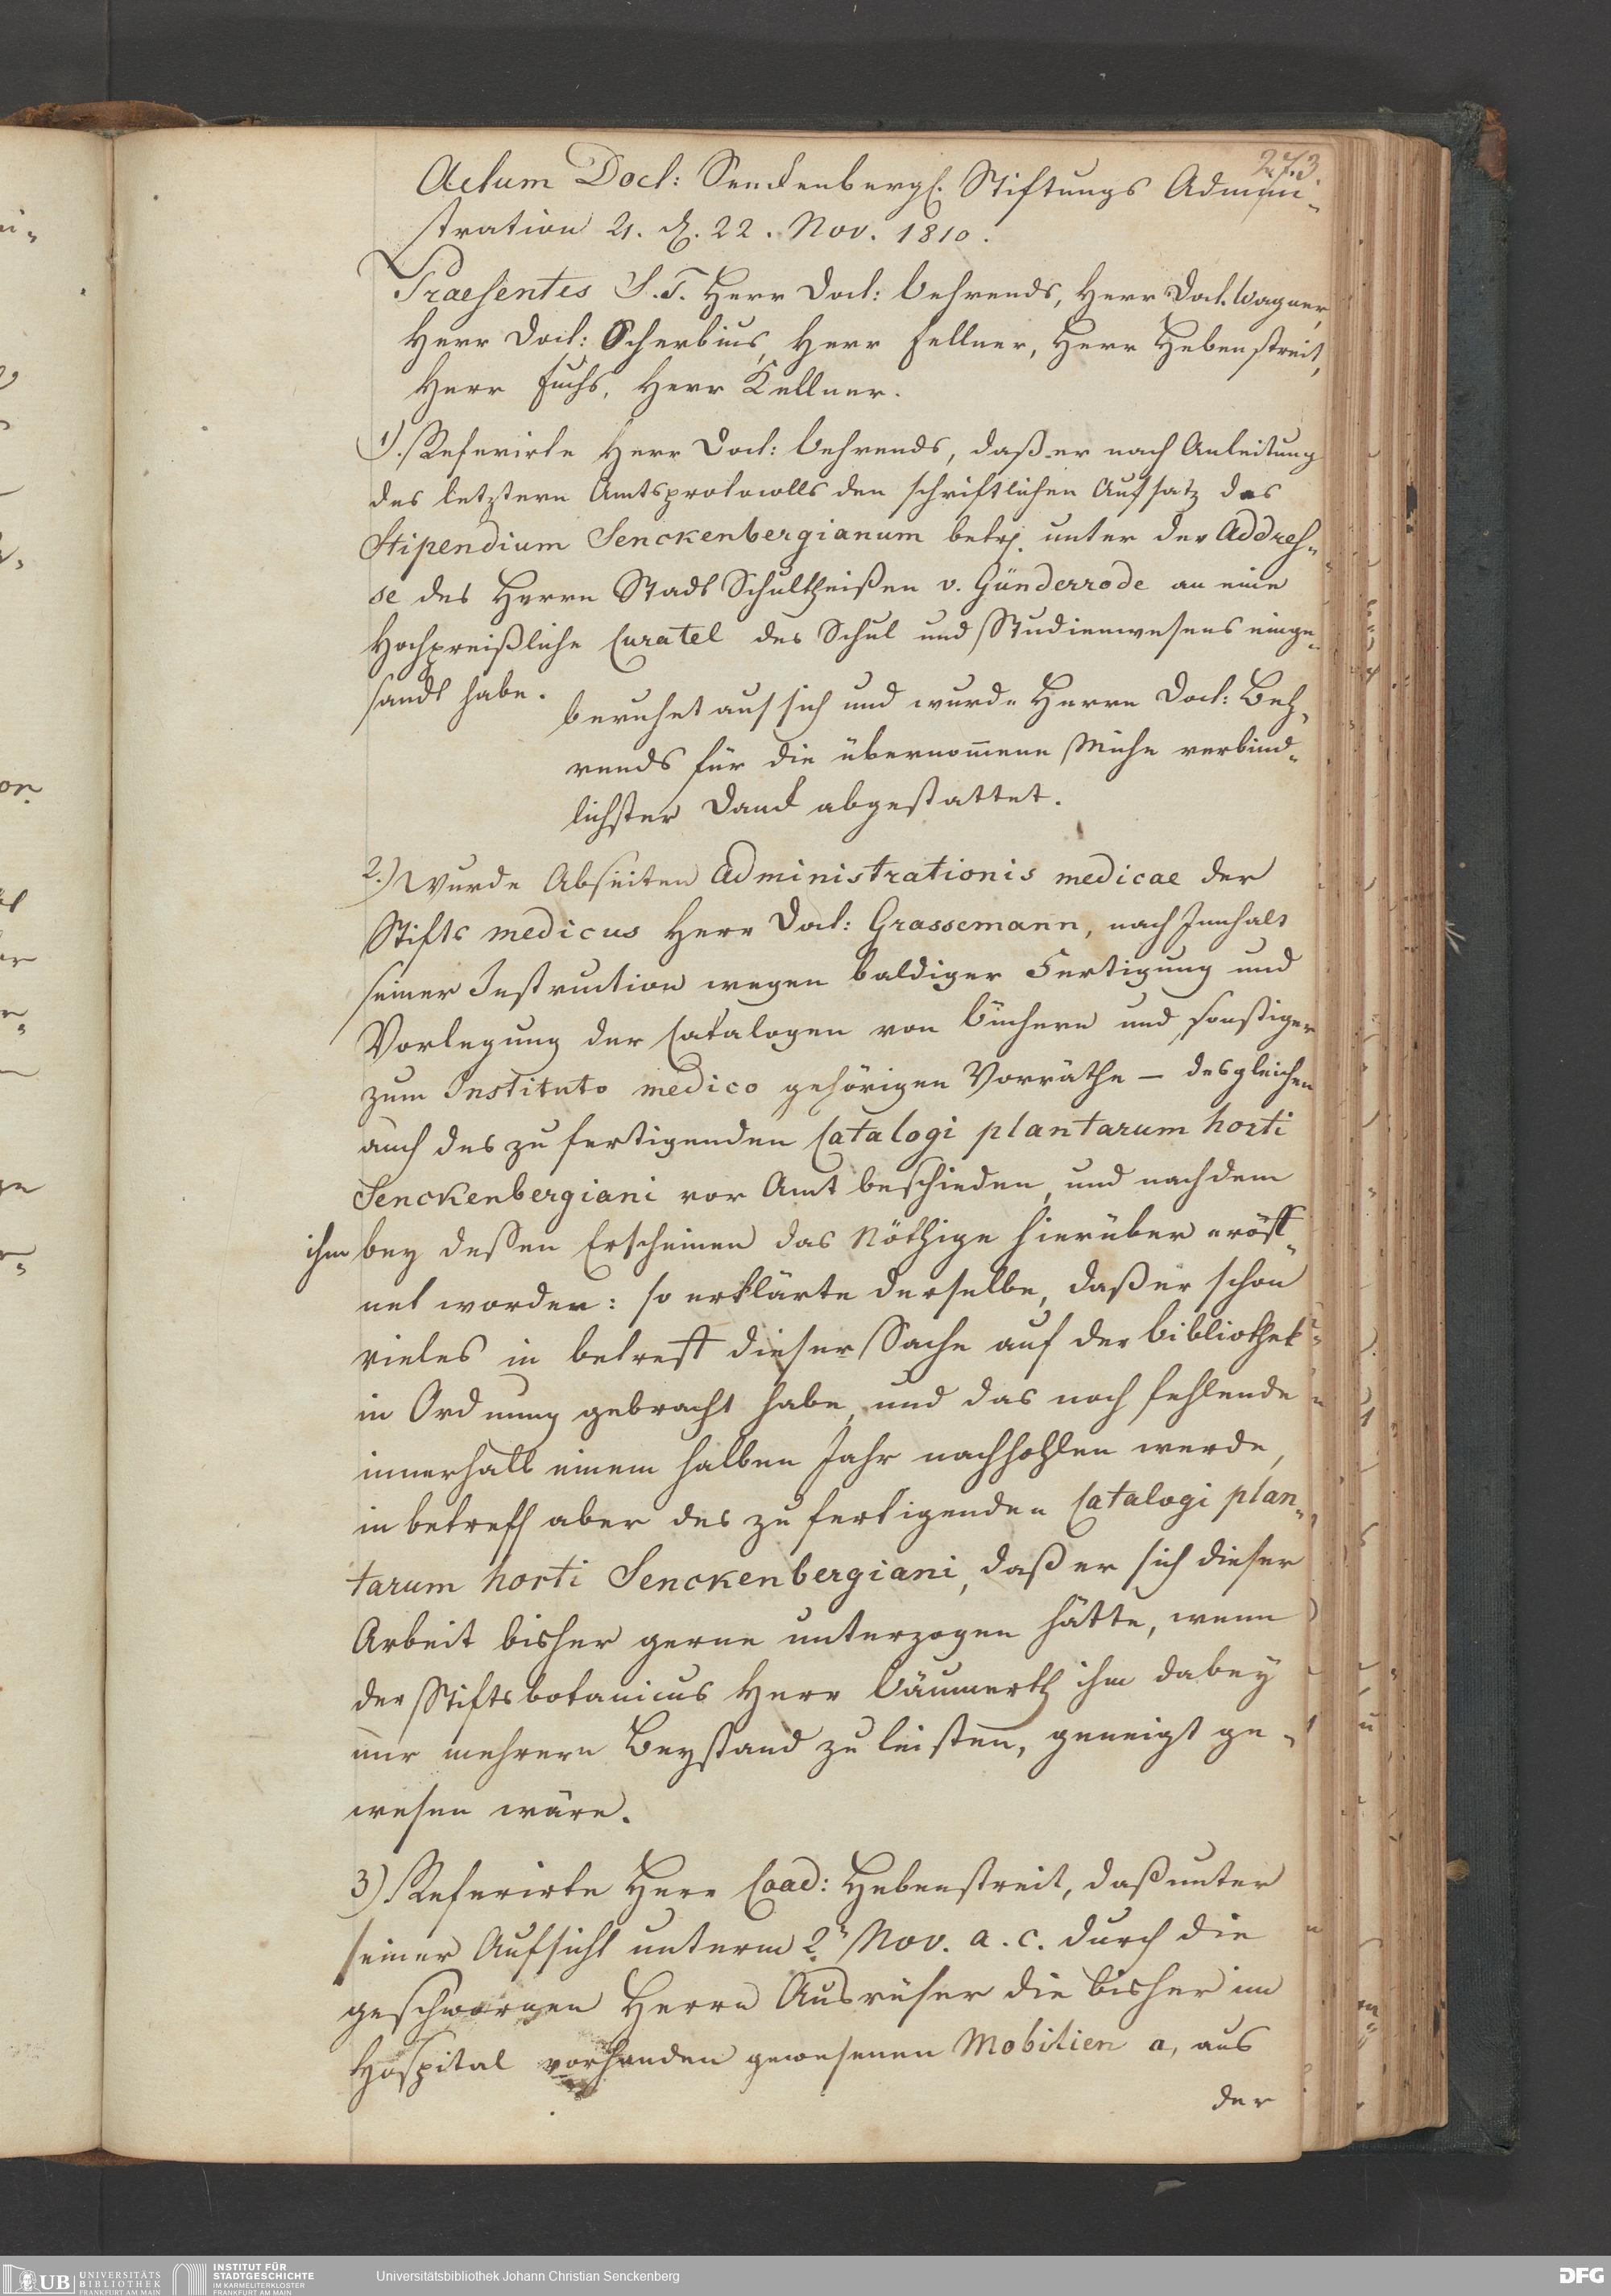 273
Actum Doct: Senckenbergl. Stiftungs Admini-
stration 21. d. 22. Nov. 1810.
Praesentes S. T. Herr Doct: Behrends, Herr Doct. Wagner,
Herr Doct: Scherbius, Herr Fellner, Herr Hebenstreit,
Herr Fuchs, Herr Kellner.
1). Referirte Herr Doct: Behrends, daß er nach Anleitung
des letztern Amtsprotocolls den schriftlichen Aufsatz das
Stipendium Senckenbergianum betrf. unter der Addres-
se des Herrn Stadt Schultheißen v. Günderrode an eine
Hochpreißliche Curatel des Schul und Studienwesens einge-
sandt habe.
beruhet auf sich und wurde Herrn Doct: Beh-
rends für die übernom̅ene Mühe verbind-
lichster Danck abgestattet.
2.) Wurde Abseiten Administrationis medicae der
Stifts medicus Herr Doct: Grassemann, nach Innhalt
seiner Instruction wegen baldiger Fertigung und
Vorlegung der Catalogen von Büchern und sonstiger
zum Instituto medico gehörigen Vorräthe – desgleichen
auch des zu fertigenden Catalogi plantarum horti
Senckenbergiani vor Amt beschieden, und nachdem
ihm bey deßen Erscheinen das Nöthige hierüber eröff-
net worden: so erklärte derselbe, daß er schon
vieles in betreff dieser Sache auf der Bibliothek
in Ordnung gebracht habe, und das noch fehlende
innerhalb einem halben Jahr nachhohlen werde,
in betreff aber des zu fertigenden Catalogi plan-
tarum horti Senckenbergiani, daß er sich dieser
Arbeit bisher gerne unterzogen hätte, wenn
der Stiftsbotanicus Herr Bäumerth ihm dabey
nur mehrern Beystand zu leisten, geneigt ge-
wesen wäre.
3). Referirte Herr Coad: Hebenstreit, daß unter
seiner Aufsicht unterm 2. Nov. a. c. durch die
geschwornen Herrn Ausrüfer die bisher im
Hospital vorhanden gewesenen Mobilien a, aus
der
UB UNIVERSITÄTS
BIBLIOTHEK
FRANKFURT AM MAIN
INSTITUT FÜR
STADTGESCHICHTE
IM KARMELITERKLOSTER
FRANKFURT AM MAIN
Universitätsbibliothek Johann Christian Senckenberg
DFG